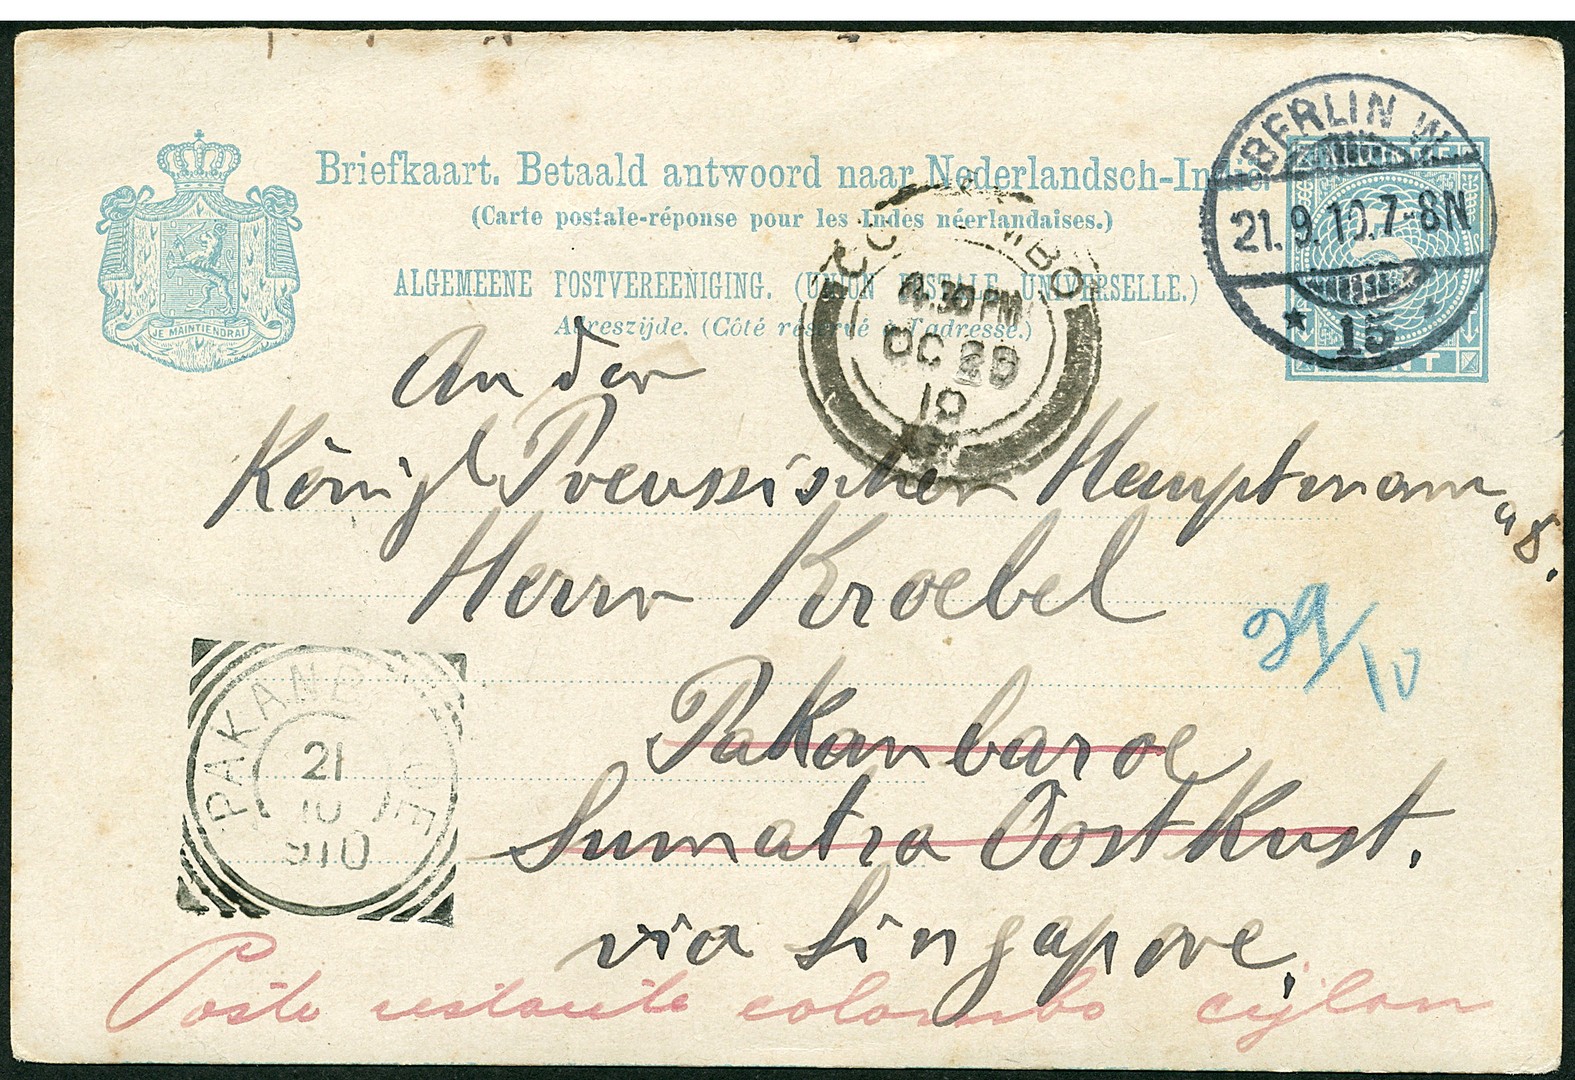 Briefkaart. Betaald antwoord naar Nederlandsch-Indië.
(Carte postale-réponse pour les Indes néerlandaises.)
ALGEMEENE POSTVEREENIGING. (UNION POSTALE UNIVERSELLE.)
Adreszijde. (Côté réservé à l'adresse.)
JE MAINTIENDRAI
CENT
BERLIN W.
21.9.10.7-8N
* 15 *
COLOMBO
PM
OC 29
10
An den
Königl Preussischen Hauptmann
a D.
Herrn Kroebel
29/10
Pakanbaroe
Sumatra Oostkust.
via Singapore.
PAKANBAROE
21
10
910
Poste restante Colombo Cijlon